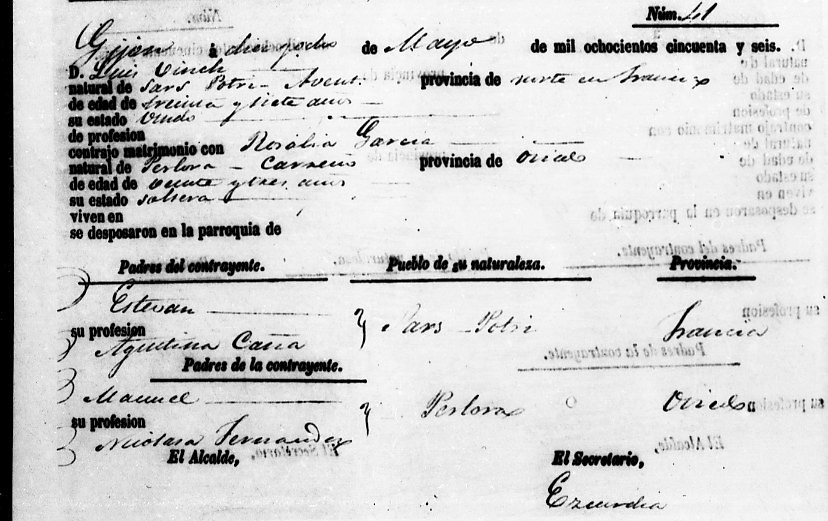 Núm. 41
Gijon á diez y ocho de Mayo de mil ochocientos cincuenta y seis.
D. Luis Vinch
natural de Sars Potri - Avent. provincia de norte en Francia
de edad de treinta y siete años
su estado Viudo
de profesion
contrajo matrimonio con Rosalia Garcia
natural de Perlora - Carreño provincia de Ovied
de edad de veinte y tres años
su estado soltera
viven en
se desposaron en la parroquia de
Padres del contrayente. Pueblo de su naturaleza. Provincia.
Estevan
su profesion Sars - Potri Francia
Agustina
Padres de la contrayente.
Manuel
Perlora Ovied
su profesion
Nicolasa Fernandez
El Alcalde, El Secretario,
Ezcurdia